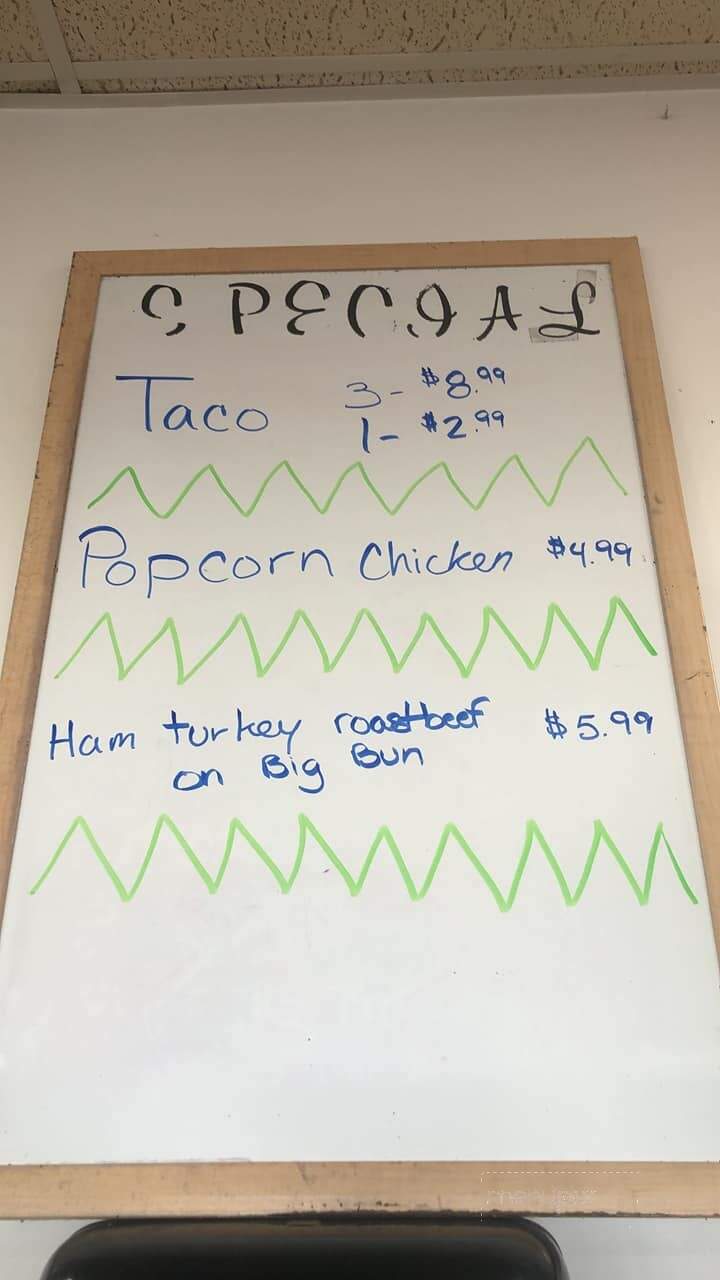 SPECIAL
Taco 3- $8.99
1- $2.99
Popcorn Chicken $4.99
Ham turkey roastbeef $5.99
on Big Bun